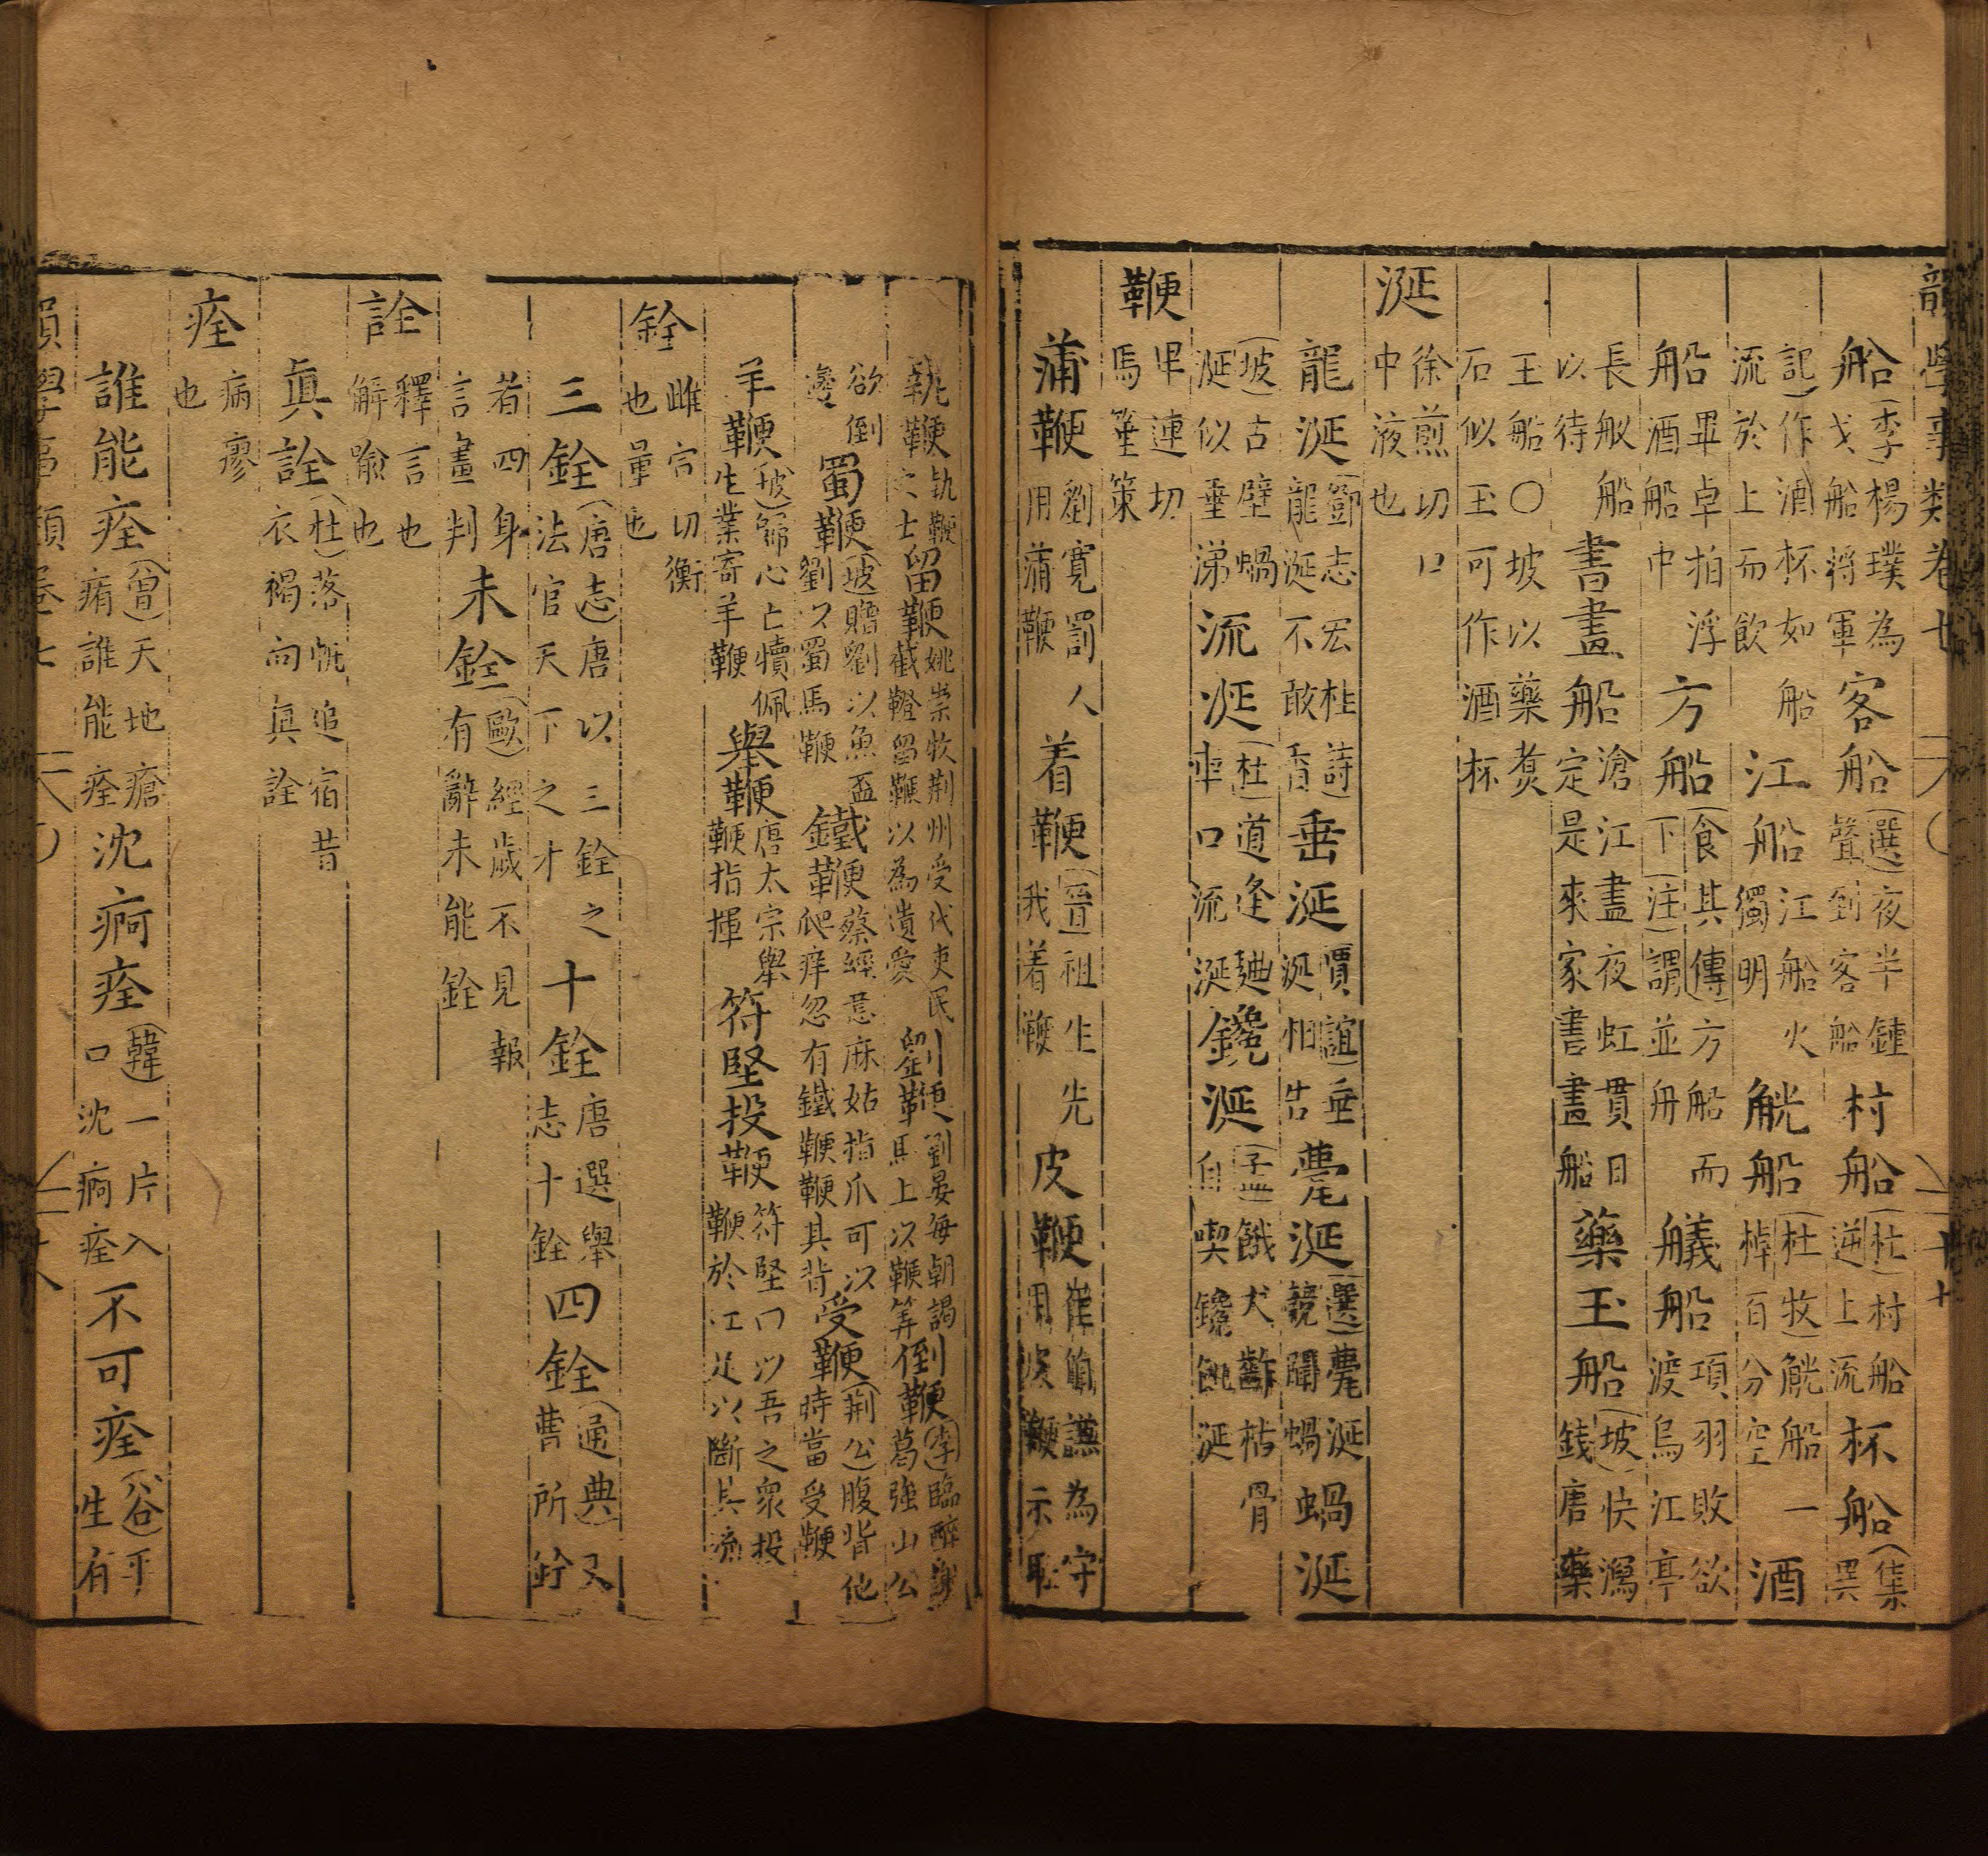 韻學事類卷七
船(李)楊璞為戈船將軍客船(選)夜半鍾聲到客船村船(杜)村船逆上流杯船(集異
記)作酒杯如船流於上而飲江船江船火獨明觥船(杜牧)觥船一棹百分空酒
船畢卓拍浮酒船中方船(食其傳)方船而下(注)謂並舟艤船項羽敗欲渡烏江亭
長舣船以待書畫船滄江盡夜虹貫日定是來家書畫船藥玉船(坡)快瀉錢唐藥
王船○坡以藥煑石似玉可作酒杯
涎徐煎切口中液也
龍涎(鄧志宏桂詩)龍涎不敢香垂涎(賈誼)垂涎相告麂涎(選)麂涎競聞蝸涎蝸涎
(坡)古壁蝸涎似垂涕流涎(杜)道逢麯車口流涎饞涎(孟)餓犬齚枯骨自喫饞飢涎
鞭卑連切馬箠策
蒲鞭劉寬罰人用蒲鞭着鞭(晋)祖生先我着鞭皮鞭崔伯謙為守用皮鞭示耻
執鞭執鞭之士留鞭姚崇牧荆州受代吏民截鐙留鞭以為遺愛劉鞭劉晏每朝謁馬上以鞭筭倒鞭(李)臨醉謝葛強山公
欲倒邊蜀鞭(坡)贈劉以魚盃劉以蜀馬鞭鐵鞭蔡經意麻姑指爪可以爬痒忽有鐵鞭鞭其背受鞭(荆公)腹背他時當受鞭
羊鞭(坡)歸心亡犢佩生業寄羊鞭舉鞭唐太宗舉鞭鞭指揮苻堅投鞭苻堅曰以吾之衆投鞭於江足以斷其流
銓雌宫切衡也量也
三銓(唐志)唐以三銓之法官天下之才十銓唐選舉志十銓四銓(通典)又曹所銓
者四身言畫判未銓(歐)經歲不見報有辭未能銓
詮釋言也解喻也
真詮(杜)落帆追宿昔衣褐向真詮
痊病瘳也
誰能痊(曾)天地瘡痏誰能痊沈痾痊(韓)一片入口沈痾痊不可痊(谷)平生有